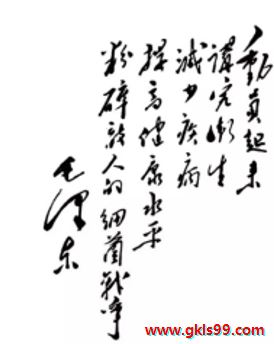 動員起来
講究衛生
減少疾病
提高健康水平
粉碎敌人的细菌战争
毛泽东
www.gkls99.com